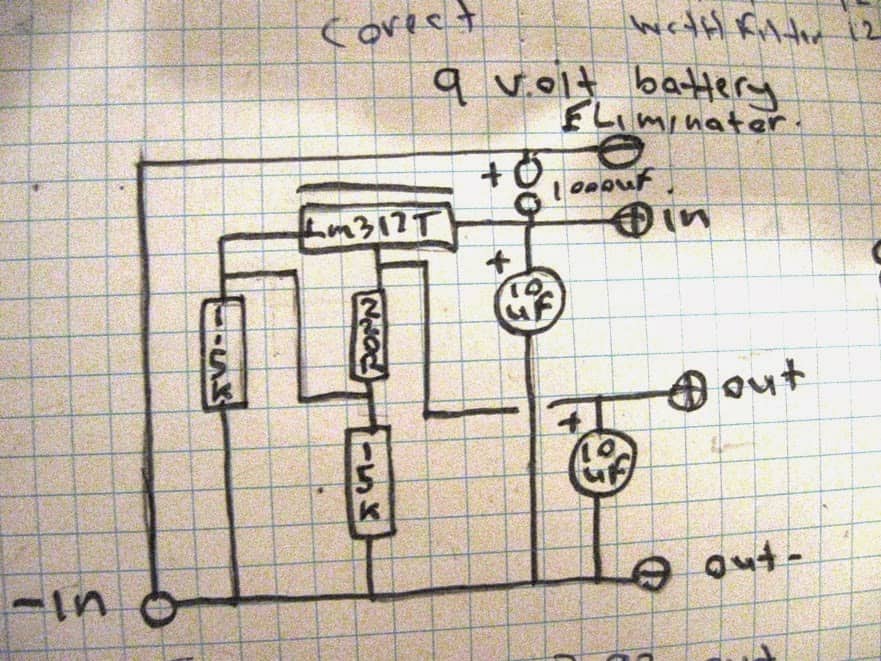 Corect
With Filter 12
9 volt battery
ELiminater.
+
1000uf.
Lm317T
+ in
+
10
uf
1.5K
220R
+ out
+
10
uf
1.5K
- out-
-in